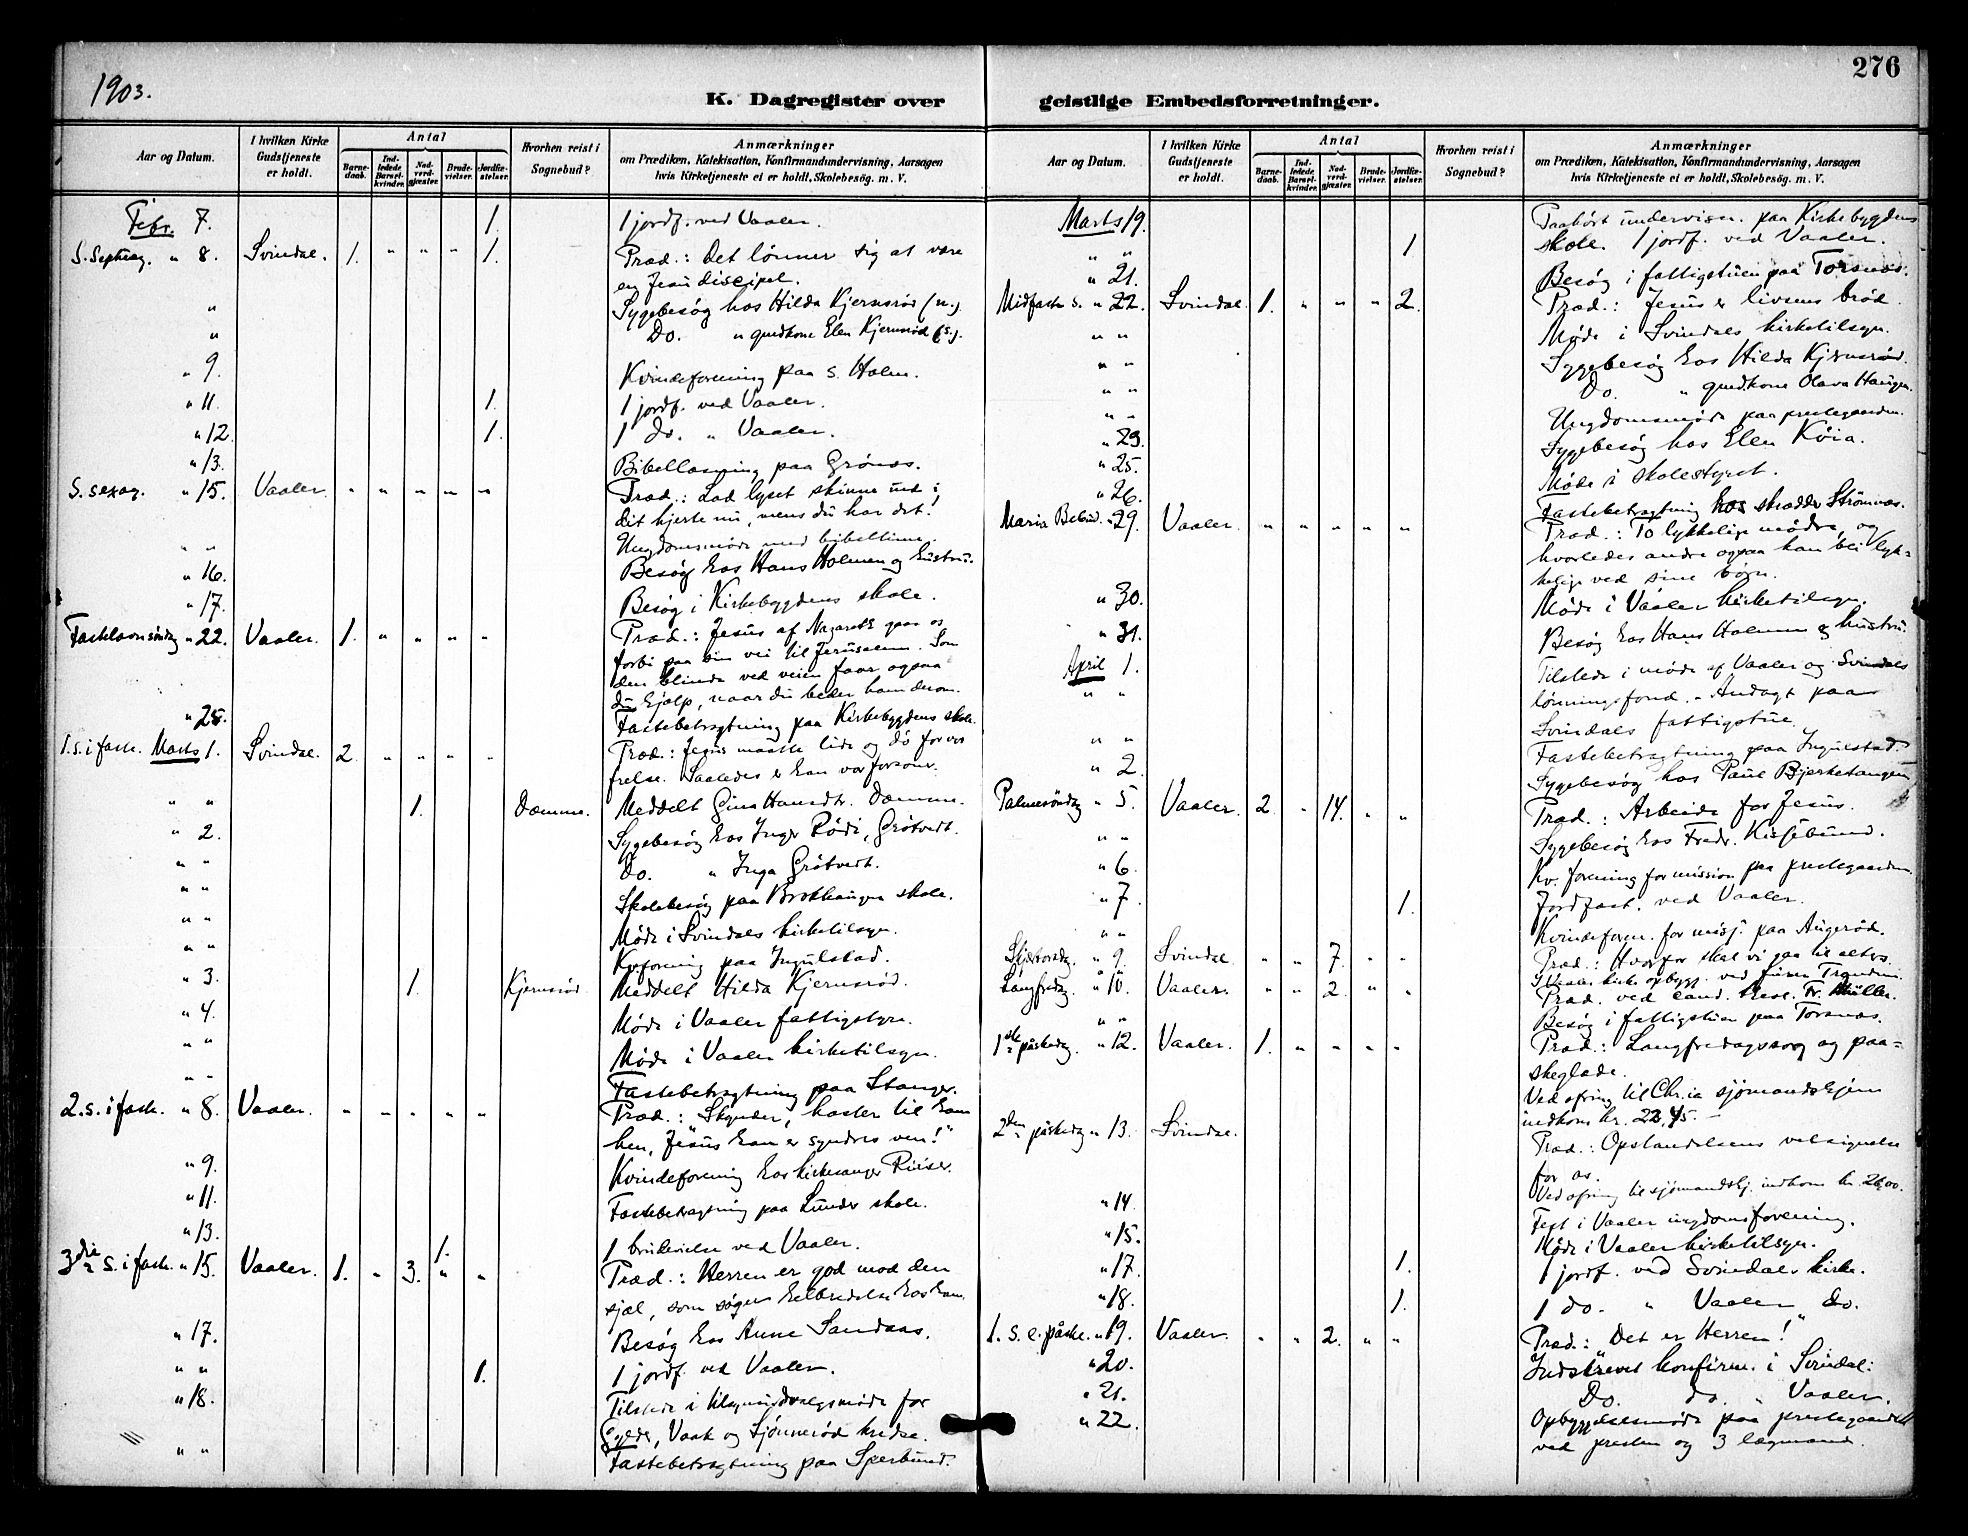 1903.
276
K. Dagregister over
geistlige Embedsforretninger.
Aar og Datum.
I hvilken Kirke Gudstjeneste er holdt.
Antal
Barne-daab.
Ind-ledede Barsel-kvinder.
Nad-verd-gjæster.
Brude-vielser.
Jordfæ-stelser.
Hvorhen reist i Sognebud?
Anmærkninger
om Prædiken, Katekisation, Konfirmandundervisning, Aarsagen
hvis Kirketjeneste ei er holdt, Skolebesøg. m. V.
Febr. 7. 1. 1 jordf. ved Vaaler.
S. Septuag. " 8. Svindal. 1. " " " 1. Præd.: Det lønner sig at være
en Jesu discipel.
" Sygebesøg hos Hilda Kjernsrød (n.).
" Do. " gmdkone Elen Kjernsrød (s.).
" 9. Kvindeforening paa S. Holm.
" 11. 1. 1 jordf. ved Vaaler.
" 12. 1. 1 do. " Vaaler.
" 13. Bibellæsning paa Grønas.
S. sexag. " 15. Vaaler. " " " " " Præd.: Lad lyset skinne ind i
dit hjerte nu, mens du har det!
" " Ungdomsmøde med bibeltime.
" 16. Besøg hos Hans Holmen og hustru.
" 17. Besøg i Kirkebygdens skole.
Fastelavnsøndag " 22. Vaaler. 1. " " " " Præd.: Jesus af Nazareth gaar os
forbi paa sin vei til Jerusalem. Som
den blinde ved veien faar ogsaa
du hjælp, naar du beder ham derom.
" 25. Fastebetragtning paa Kirkebygdens skole.
1. s. i faste. Marts 1. Svindal. 2. " " " " Præd.: Jesus maatte lide og dø for vor
frelse. Saaledes er han vor forsoner.
" " 1. Dæmme. Meddelt Gina Hansdt. Dæmme.
" 2. Sygebesøg hos Inger Rødi, Grøtvedt.
" " Do. " Inga Grøtvedt.
" " Skolebesøg paa Brækhaugen skole.
" " Møde i Svindals kirketilsyn.
" " Kv.forening paa Ingulstad.
" 3. 1. Kjernsrød. Meddelt Hilda Kjernsrød.
" 4. Møde i Vaaler fattigstyre.
" " Møde i Vaaler kirketilsyn.
" " Fastebetragtning paa Stanger.
2. s. i faste. " 8. Vaaler. " " " " " Præd.: Skynder, haster til ham
hen, Jesus han er synders ven!"
" 9. Kvindeforening hos kirkesanger Riiser.
" 11. Fastebetragtning paa Lunder skole.
" 13. 1. 1 brudevielse ved Vaaler.
3die s. i faste. " 15. Vaaler. 1. " 3. " " Præd.: Herren er god mod den
sjæl, som søger helbredelse hos ham.
" 17. Besøg hos Anne Sandaas.
" " 1. 1 jordf. ved Vaaler.
" 18. Tilstede i tilsynsudvalgsmøde for
Gylder, Vaak og Sjønnerød kredse.
" " Fastebetragtning paa Sperbund.
Aar og Datum.
I hvilken Kirke Gudstjeneste er holdt.
Antal
Barne-daab.
Ind-ledede Barsel-kvinder.
Nad-verd-gjæster.
Brude-vielser.
Jordfæ-stelser.
Hvorhen reist i Sognebud?
Anmærkninger
om Prædiken, Katekisation, Konfirmandundervisning, Aarsagen
hvis Kirketjeneste ei er holdt, Skolebesøg. m. V.
Marts 19. Paahørt undervisn. paa Kirkebygdens
skole.
" " 1 1 jordf. ved Vaaler.
" 21. Besøg i fattigstuen paa Torsnæs.
Midfaste s. " 22. Svindal. 1. " " " 2. Præd.: Jesus er livsens brød.
" " Møde i Svindals kirketilsyn.
" " Sygebesøg hos Hilda Kjernsrød.
" " Do. " gmdkone Olava Haugen.
" " Ungdomsmøde paa prestegaarden.
" 23. Sygebesøg hos Elen Køia.
" 25. Møde i skolestyret.
" 26. Fastebetragtning hos skrædder Strømnæs.
Maria Bebud. " 29. Vaaler. " " " " " Præd.: To lykkelige mødre, og
hvorledes andre ogsaa kan bli lyk=
kelige ved sine børn.
" 30. Møde i Vaaler kirketilsyn.
" 31. Besøg hos Hans Holmen og hustru.
April 1. Tilstede i møde af Vaaler og Svindals
lønningsfond.
" " Andagt paa
Svindals fattigstue.
" " Fastebetragtning paa Ingulstad.
" 2. Sygebesøg hos Paul Bjerketangen
Palmesøndag " 5. Vaaler. 2. " 14. " " Præd.: Arbeide for Jesus.
" " Sygebesøg hos Fredr. Kirsebund.
" 6. Kv. forening for mission paa prestegaarden.
" 7. 1. Jordfæst. ved Vaaler.
" " Kvindeforen. for misj. paa Augerød.
Skjærtorsdag. " 9. Svindal. " " 7. " " Præd.: Hvorfor skal vi gaa til alters.
Langfredag. " 10. Vaaler. " " 2. " " Præd. ved cand. theol. Fr. Müller.
" " Besøg i fattigstuen paa Torsnæs.
1ste påskedag. " 12. Vaaler. 1. " " " " Præd.: Langfredagssorg og paa=
skeglæde.
Ved ofring til Chr.ia sjømandshjem
indkom kr. 22,45.
2den påskedag " 13. Svindal. Præd.: Opstandelsens velsignelse
for os.
Ved ofring til sjømandshj. indkom kr. 26,00.
" 14. Fest i Vaaler ungdomsforening.
" 15. Møde i Vaaler kirketilsyn.
" 17. 1. 1 jordf. ved Svindals kirke.
" 18. 1. 1 do. " Vaaler do.
1. s. e. påske. " 19. Vaaler. " " 2. " " Præd.: "Det er Herren!"
" 20. Indskrevet konfirm. i Svindal.
" 21. Do. do. " Vaaler.
" 22. Opbyggelsesmøde paa prestegaarden
ved presten og 3 lægmænd.